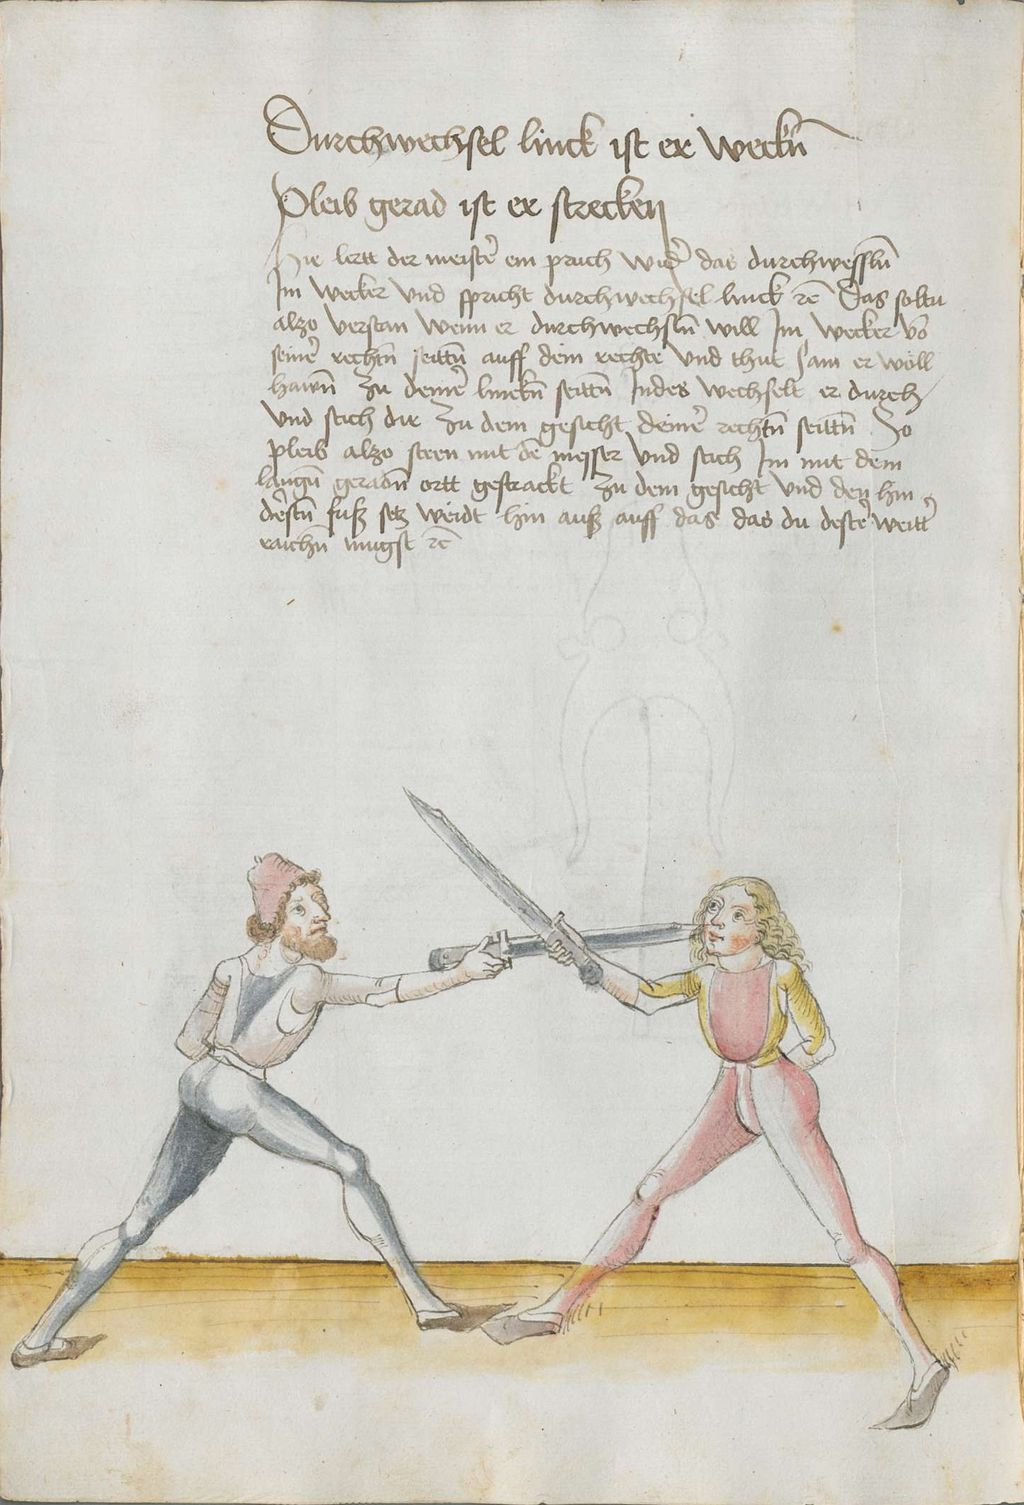 Durchwechsel linck ist er weckn̄
Pleib gerad ist er strecken
Hie lertt der meistẽ ein pruch widẽ das durchwesslñ
Im wecker vnd spricht durchwechsel linck rc̃ Das soltu
alzo verstan wenn er durchwechslñ will Im wecker võ
seinẽ rechtñ seittñ auff dein rechte vnd thut sam er wöll
hawñ zu deinẽ linckñ seittñ Indes wechselt er durch
vnd stich dir zu dem gesicht deinẽ rechtñ seittñ So
pleib alzo steen mit dẽ messer vnd stich Im mit dem
langñ geradñ ortt gestrackt zu dem gesicht vnd den hin
dẽstñ fuß setz weidt hin auß auff das das du destẽ weittẽ
raichñ mugst rc̃